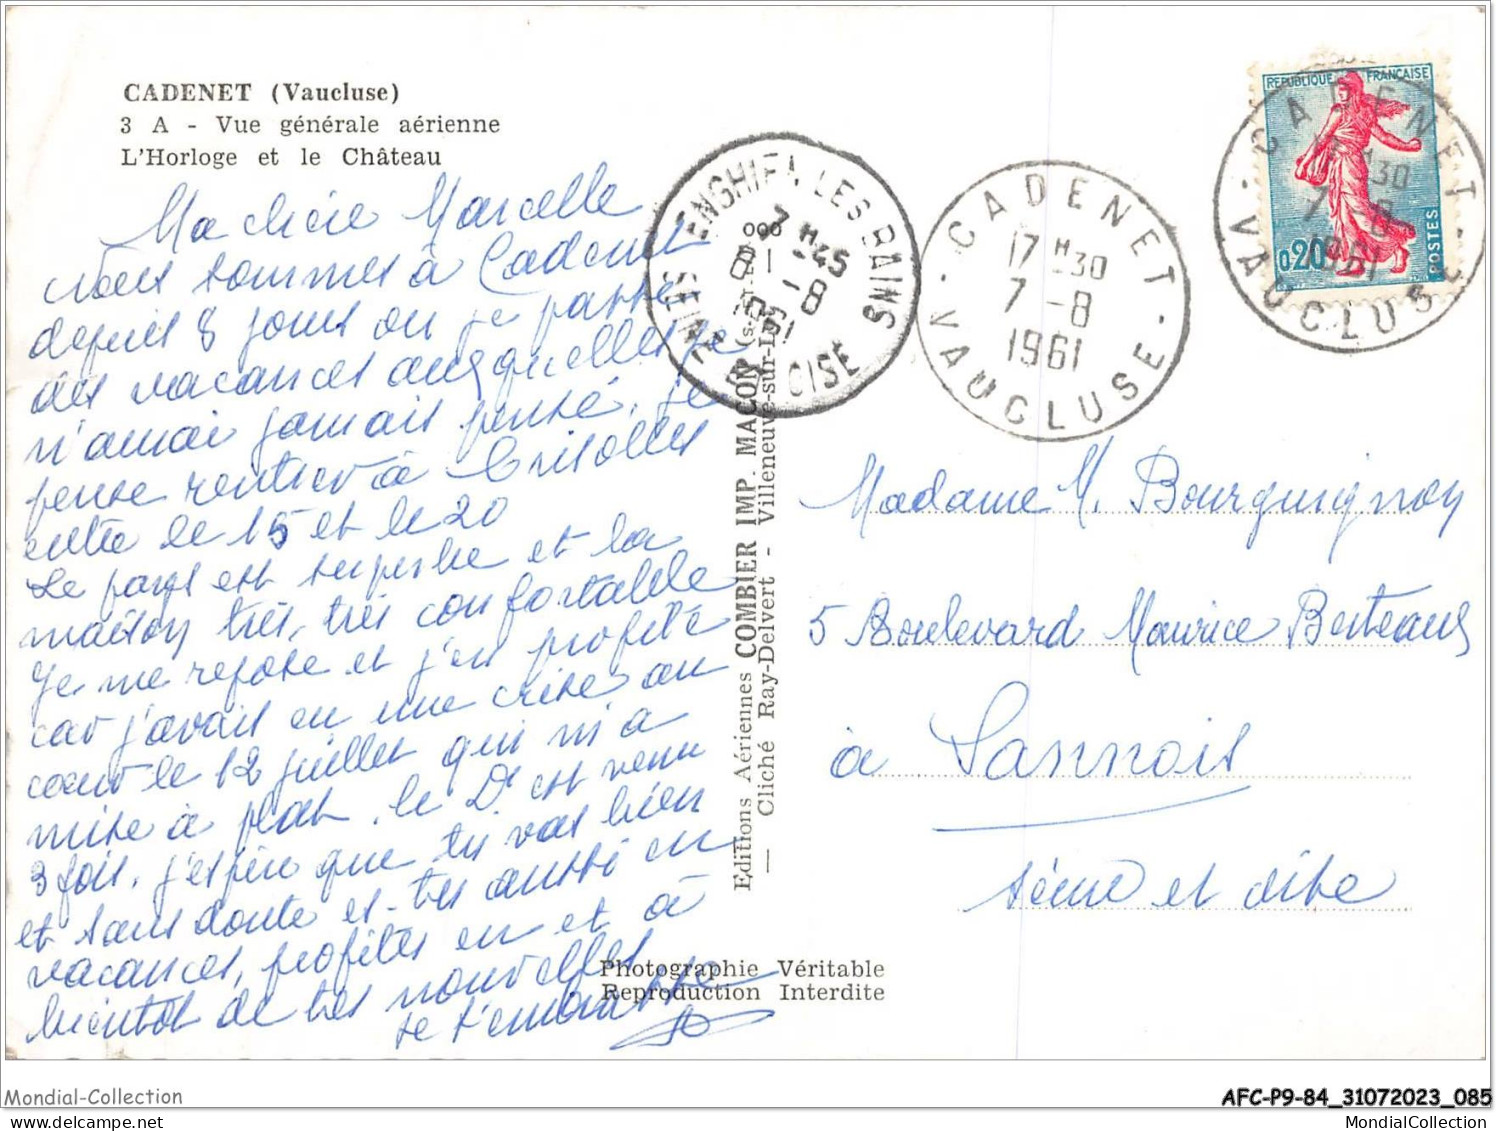 CADENET (Vaucluse)
3 A - Vue générale aérienne
L'Horloge et le Château
Ma chère Marcelle
Nous sommes à Cadenet
depuis 8 jours où je passe
des vacances auxquelles je
n'aurai jamais pensé, je
pense rentrer à
entre le 15 et le 20
Le pays est superbe et la
maison très, très confortable
Je me repose et j'en profite
car j'avais eu une crise au
cœur le 12 juillet qui m'a
mise à plat. le Dr est venu
3 fois. j'espère que tu vas bien
et sans doute es-tu aussi en
vacances, profites en et à
bientôt de tes nouvelles
je t'embrasse
Editions Aériennes COMBIER IMP. MACON (S.-et-L.)
— Cliché Ray-Delvert - Villeneuve-sur-Lot
Photographie Véritable
Reproduction Interdite
ENGHIEN LES BAINS
7 H 45
8 - 8
1961
SEINE ET OISE
CADENET
17 H 30
7 - 8
1961
VAUCLUSE
REPUBLIQUE FRANÇAISE
0,20
POSTES
CADENET
17 H 30
7 - 8
1961
VAUCLUSE
Madame M. Bourguignon
5 Boulevard Maurice Berteaux
à Sannois
Seine et Oise
Mondial-Collection
AFC-P9-84_31072023_085
MondialCollection